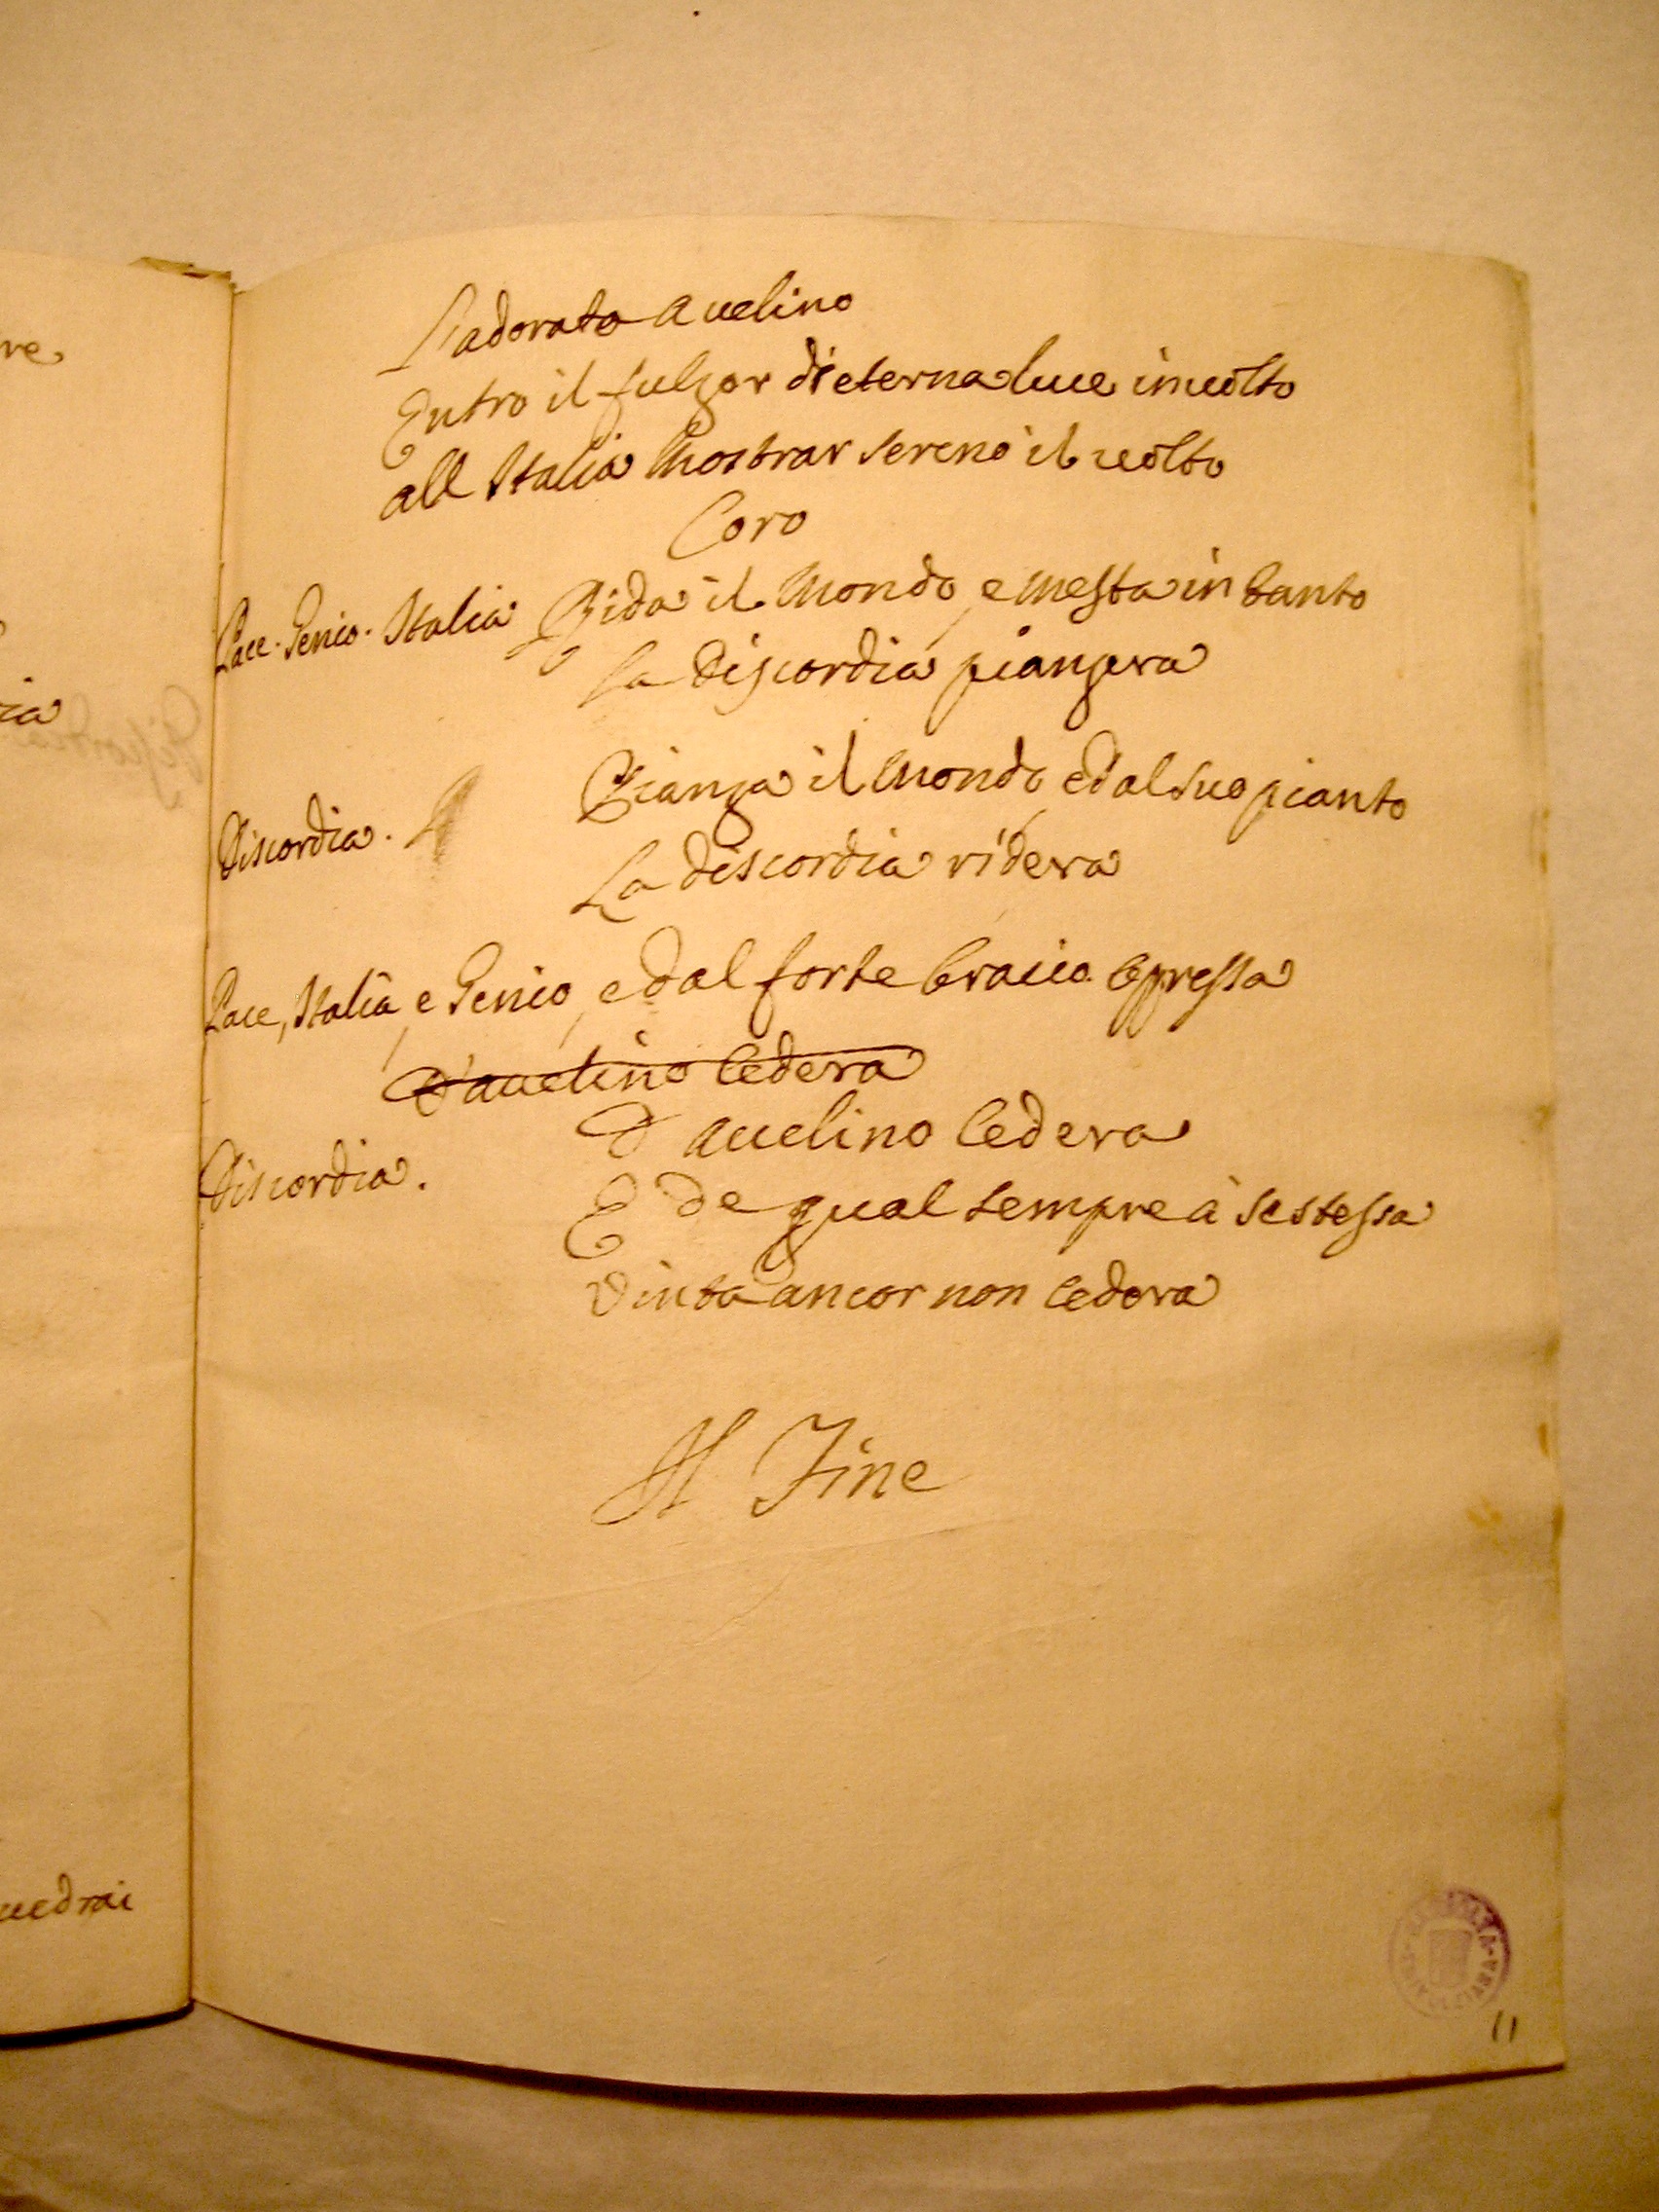 re
ia
uedrai
L'adorato Auelino
Entro il fulgor di eterna luce inuolto
all Italia Mostrar sereno il uolto
Coro
Pace. Genio. Italia Rida il Mondo, e Mesta in tanto
La Discordia piangera
Discordia. Pianga il Mondo, ed al suo pianto
La discordia ridera
Pace, Italia, e Genio, e dal forte braccio oppressa
D'auelino Cedera
D'auelino Cedera
Discordia. E de qual sempre à se stessa
Vinta ancor non cedera
Il Fine
11